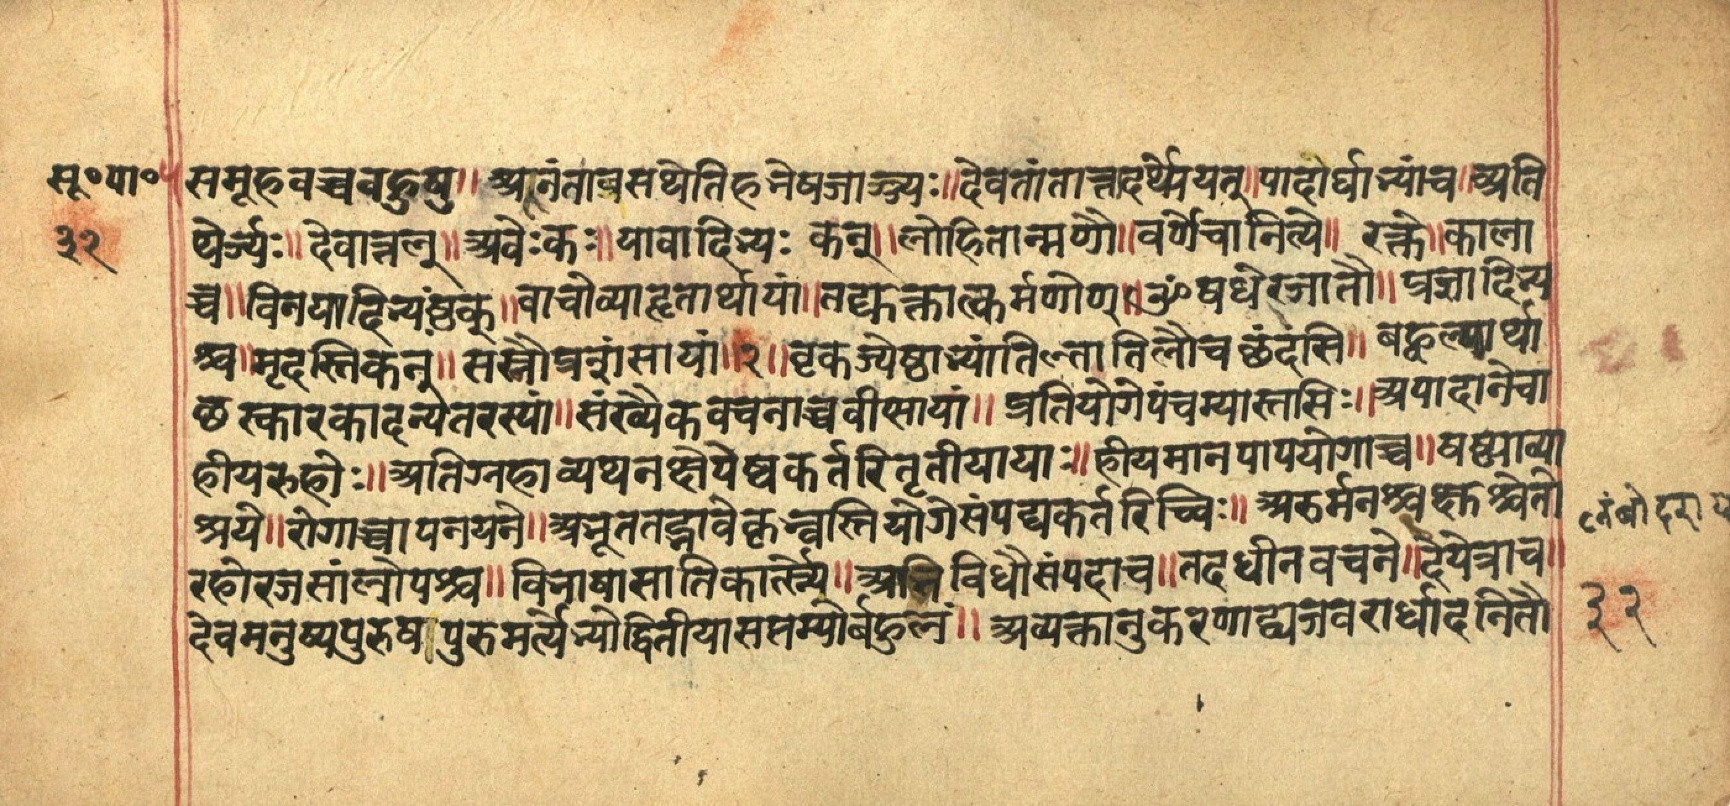 सू॰पा॰
३२
समूहवच्चबहुषु॥ अनंतावसथेतिहभेषजाञ्ञ्यः॥देवतांतात्तादर्थ्येयत्॥पादार्घाभ्यांच॥अति
थेर्ञ्यः॥देवात्तल्॥अवेःकः॥यावादिभ्यः कन्॥लोहितान्मणौ॥वर्णेचानित्ये॥ रक्ते॥काला
च्च॥विनयादिभ्यष्ठक्॥वाचोव्याहृतार्थायां॥तद्युक्तात्कर्मणोण्॥ओषधेरजातौ॥प्रज्ञादिभ्य
श्च॥मृदस्तिकन्॥सस्नौप्रशंसायां॥२॥वृकज्येष्ठाभ्यांतिल्तातिलौचछंदसि॥बह्वल्पार्था
छस्कारकादन्यतरस्यां॥संख्यैकवचनाच्चवीप्सायां॥प्रतियोगेपंचम्यास्तसिः॥अपादानेचा
हीयरुहोः॥अतिग्रहाव्यथनक्षेपेष्वकर्तरितृतीयायाः॥हीयमानपापयोगाच्च॥षष्ठ्याव्या
श्रये॥रोगाच्चापनयने॥अभूततद्भावेकृभ्वस्तियोगेसंपद्यकर्तरिच्विः॥अरुर्मनश्चक्षुश्चेतो
रहोरजसांलोपश्च॥विभाषासातिकार्त्स्न्ये॥अभिविधौसंपदाच॥तदधीनवचने॥देयेत्राच॥
देवमनुष्यपुरुषपुरुमर्त्येभ्योद्वितीयासप्तम्योर्बहुलं॥अव्यक्तानुकरणाद्व्यजवरार्धादनितौ
लंबोदराय
३२